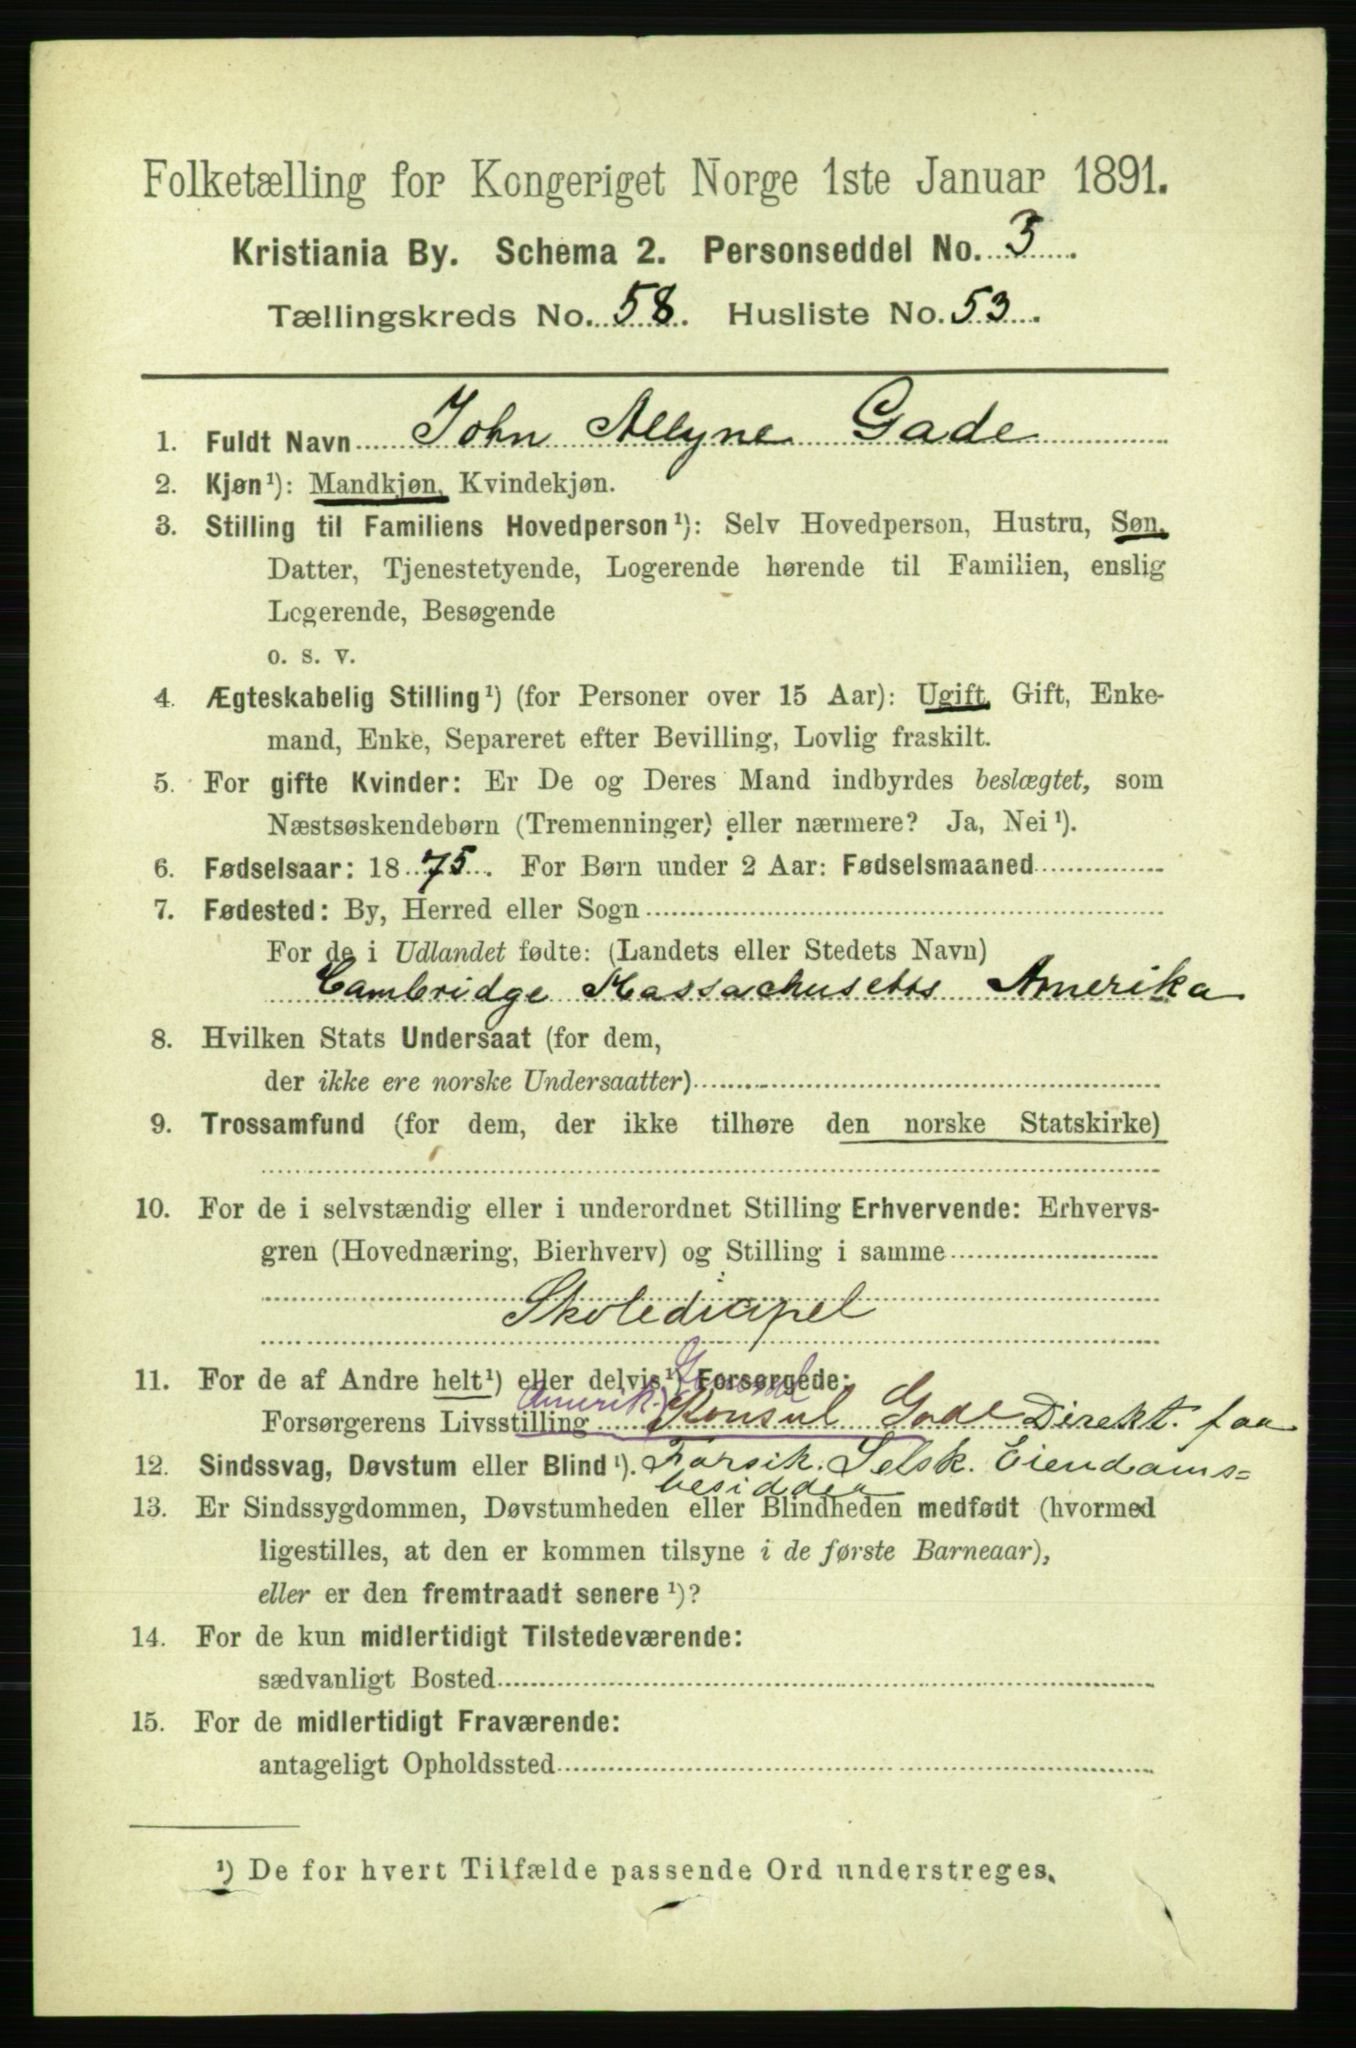 Folketælling for Kongeriget Norge 1ste Januar 1891.
Kristiania By. Schema 2. Personseddel No. 3.
Tællingskreds No. 58. Husliste No. 53.
1. Fuldt Navn John Allyne Gade
2. Kjøn¹): Mandkjøn, Kvindekjøn.
3. Stilling til Familiens Hovedperson¹): Selv Hovedperson, Hustru, Søn,
Datter, Tjenestetyende, Logerende hørende til Familien, enslig
Logerende, Besøgende
o. s. v.
4. Ægteskabelig Stilling¹) (for Personer over 15 Aar): Ugift, Gift, Enke-
mand, Enke, Separeret efter Bevilling, Lovlig fraskilt.
5. For gifte Kvinder: Er De og Deres Mand indbyrdes beslægtet, som
Næstsøskendebørn (Tremenninger) eller nærmere? Ja, Nei¹).
6. Fødselsaar: 1875. For Børn under 2 Aar: Fødselsmaaned
7. Fødested: By, Herred eller Sogn
For de i Udlandet fødte: (Landets eller Stedets Navn)
Cambridge Massachusetts Amerika
8. Hvilken Stats Undersaat (for dem,
der ikke ere norske Undersaatter)
9. Trossamfund (for dem, der ikke tilhøre den norske Statskirke)
10. For de i selvstændig eller i underordnet Stilling Erhvervende: Erhvervs-
gren (Hovednæring, Bierhverv) og Stilling i samme
Skoledicipel
11. For de af Andre helt¹) eller delvis¹) Forsørgede:
Forsørgerens Livsstilling Amerik. Konsul Gade Direkt. faa
12. Sindssvag, Døvstum eller Blind¹). Forsik. Selsk. Eiendams=
besidder
13. Er Sindssygdommen, Døvstumheden eller Blindheden medfødt (hvormed
ligestilles, at den er kommen tilsyne i de første Barneaar),
eller er den fremtraadt senere¹)?
14. For de kun midlertidigt Tilstedeværende:
sædvanligt Bosted
15. For de midlertidigt Fraværende:
antageligt Opholdssted
¹) De for hvert Tilfælde passende Ord understreges.